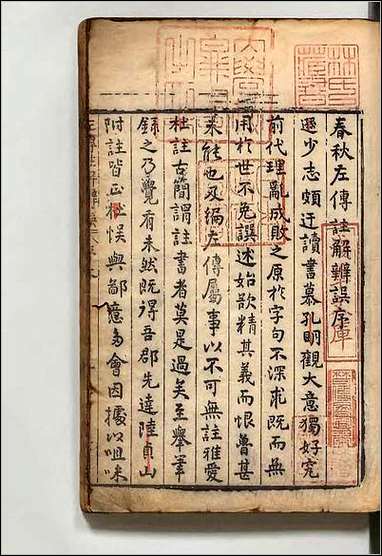 春秋左傳註解辨誤序
遜少志頗迂讀書慕孔明觀大意獨好究
前代理亂成敗之原於字句不深求既而無
用於世不免譔述始欲精其義而恨魯甚
未能也及編左傳屬事以不可無註雅愛
杜註古簡謂註書者莫是過矣至舉筆
錄之乃覺有未然既得吾郡先達陸貞山
附註皆正杜悞與鄙意多會因據以咀味
林氏藏書